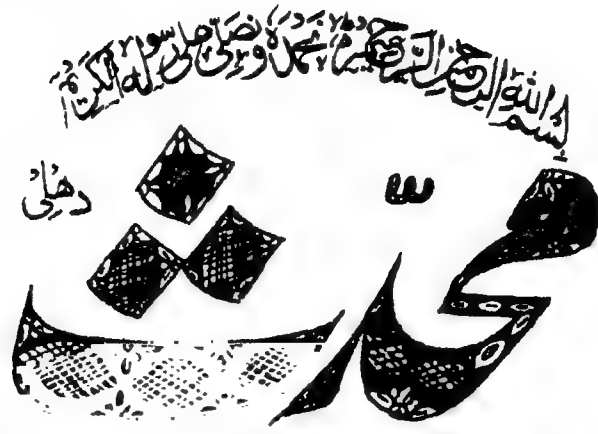 بسم الله الرحمن الرحيم نحمده ونصلی علی رسوله الکریم
محدّث
دهلی